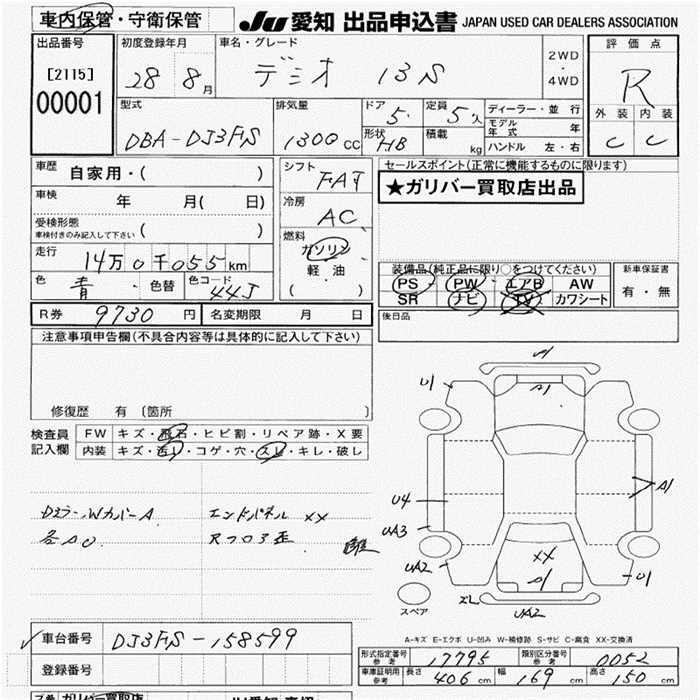 車内保管・守衛保管
JU 愛知 出品申込書 JAPAN USED CAR DEALERS ASSOCIATION
出品番号
[2115]
00001
初度登録年月
28 8月
車名・グレード
デミオ 13S
2WD
・
4WD
評価点
R
外装 内装
C C
型式
DBA-DJ3FS
排気量
1300cc
ドア 5
形状 HB
定員 5人
積載 kg
ディーラー・並行
モデル年式 年
ハンドル 左・右
車歴 自家用・( )
車検 年 月( 日)
受検形態
車検付きのみ記入して下さい ( )
走行 14万0千055km
色 青 色替 色コード 44J
シフト FAT
冷房 AC
燃料
ガソリン
軽油
( )
セールスポイント(正常に機能するものに限ります)
★ガリバー買取店出品
装備品(純正品に限り○をつけてください)
PS PW エアB AW
SR ナビ TV カワシート
新車保証書
有・無
R券 9730円 名変期限 月 日
後日品
注意事項申告欄(不具合内容等は具体的に記入して下さい)
修復歴 有 〔箇所 〕
検査員記入欄
FW キズ・飛石・ヒビ割・リペア跡・X要
内装 キズ・汚レ・コゲ・穴・スレ・キレ・破レ
DミラーWカバーA エンドパネル XX
各AU Rフロア歪
A1
U1
A1
U4
A1
UA3
UA2
XX
A1
U1
スペア
UA2
A-キズ E-エクボ U-凹み W-補修跡 S-サビ C-腐食 XX-交換済
車台番号 DJ3FS-158599
登録番号
形式指定番号 参考 17795 類別区分番号 参考 0052
車庫証明用 参考 長さ 406cm 幅 169cm 高さ 150cm
ガリバー買取店